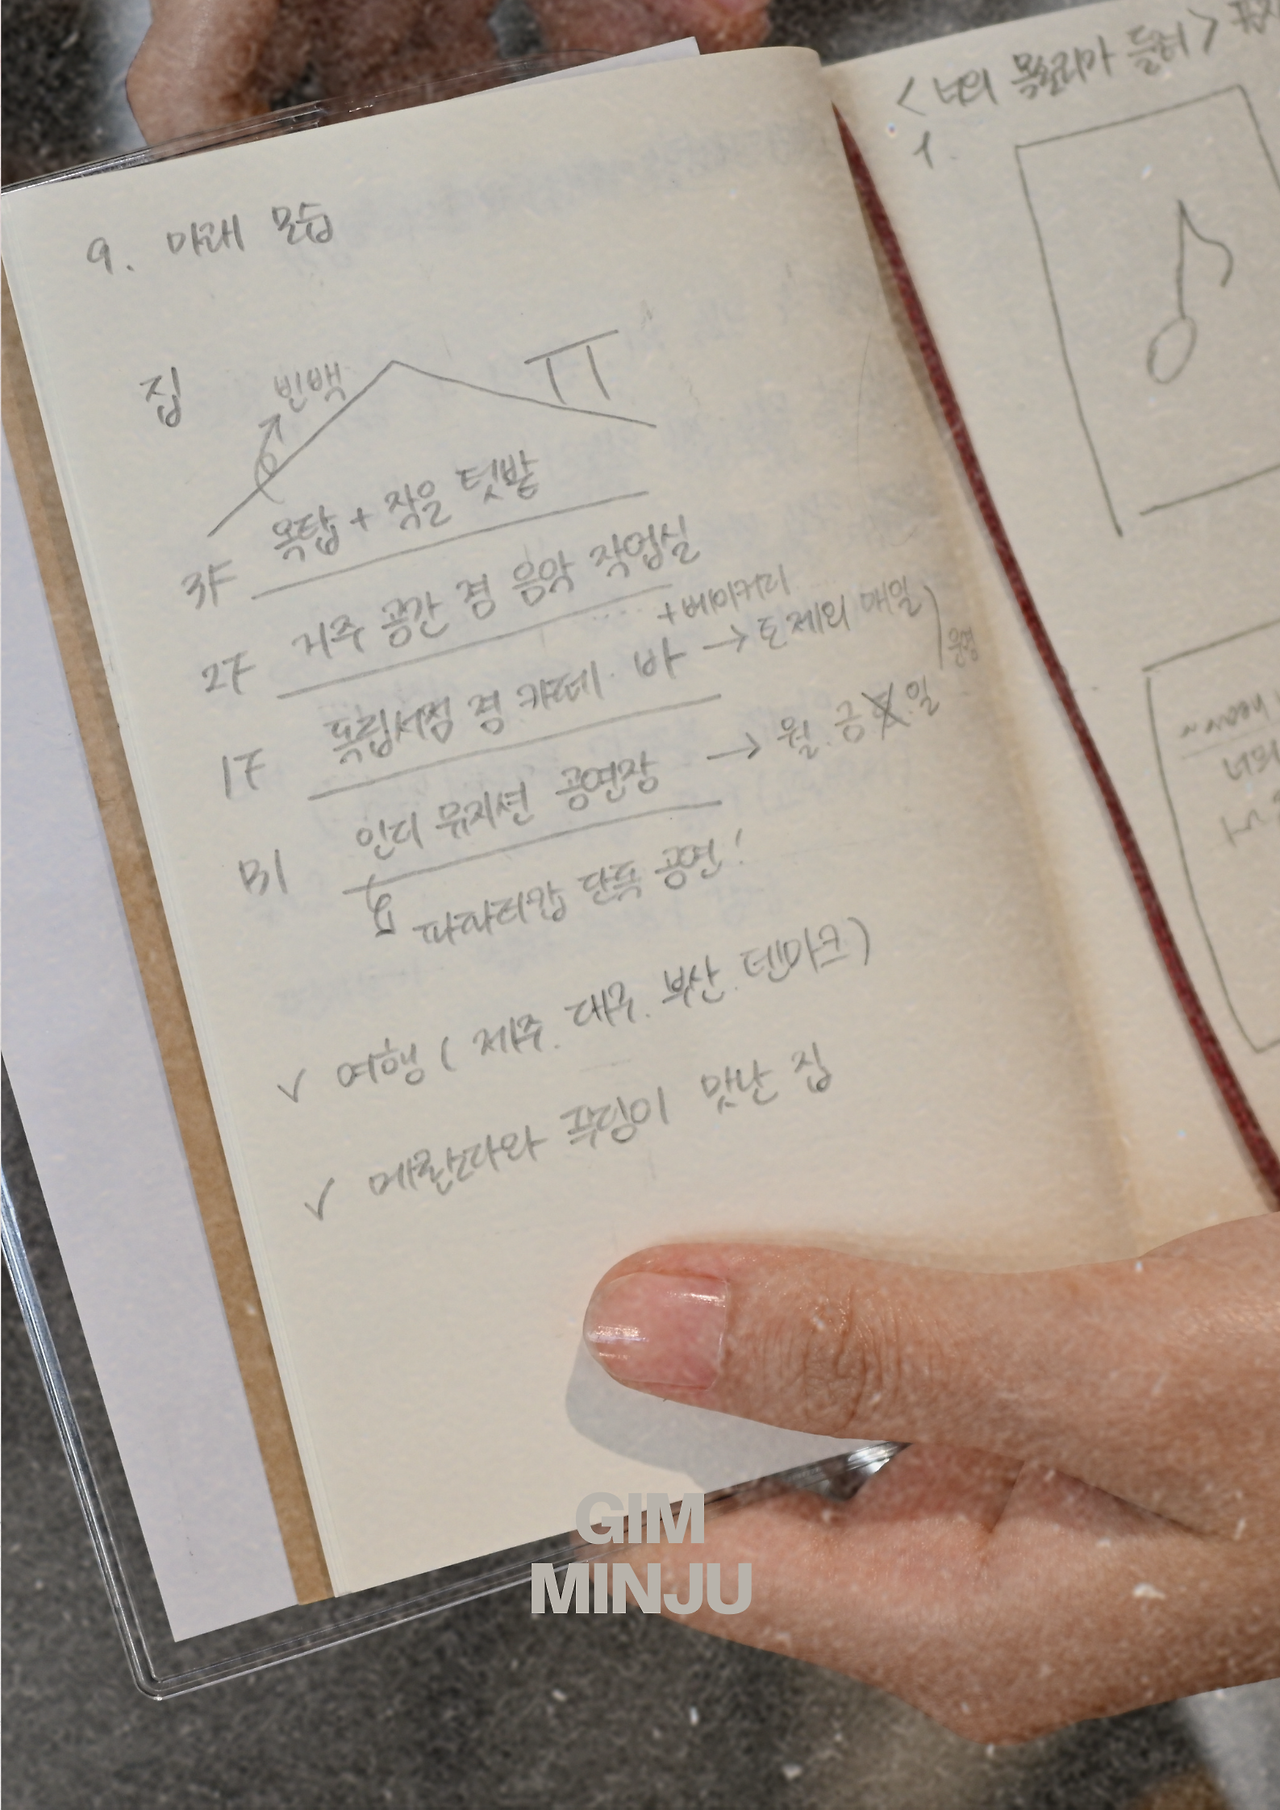 9. 미래 모습
집
빈백
3F 옥탑 + 작은 텃밭
2F 거주 공간 겸 음악 작업실
+ 베이커리
1F 독립서점 겸 카페. 바 → 토 제외 매일
운영
B1 인디 뮤지션 공연장 → 월. 금 일
파파리캅 단독 공연!
✓ 여행 ( 제주. 대구. 부산. 덴마크)
✓ 메롼다와 푸딩이 맛난 집
< 너의 목소리가 들려 >
1.
너의
GIM
MINJU